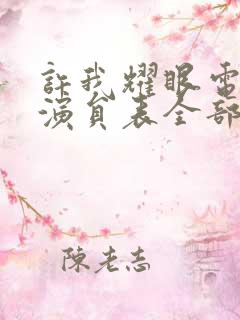 許我耀眼電
演員表全部
陳老志